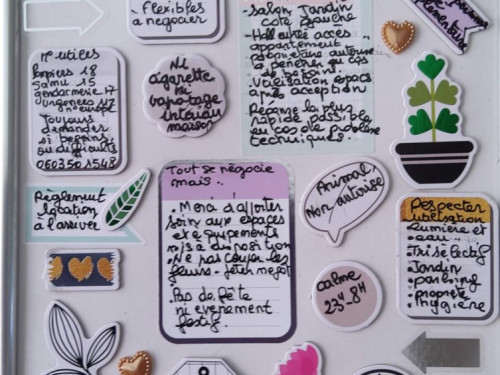 - Flexibles
à negocier
- salon Jardin
côté gauche
- Hall entrée accès
appartement
propriétaire autorisé
à pénétrer qu'en cas
de besoin.
- Validation espaces
après acception
Réponse la plus
rapide possible
en cas de problème
techniques.
N° utiles
Pompiers 18
Samu 15
gendarmerie 17
urgences 112
Toujours
demander
si besoins
ou difficultés
0603501548
Ni
cigarette
ni
vapotage
intérieur
maison
Tout se négocie
mais..
. Merci d'apporter
soin aux espaces
et équipements
mis à disposition
. Ne pas couper les
fleurs - jeter mégots
. Pas de fête
ni evenement
festif.
Animal
Non autorisé
Règlement
location
à l'arrivée
calme
23H-8H
Respecter
utilisation
Lumière et
eau
. Tri sélectif
. Jardin
. parking
. propreté
. hygiène